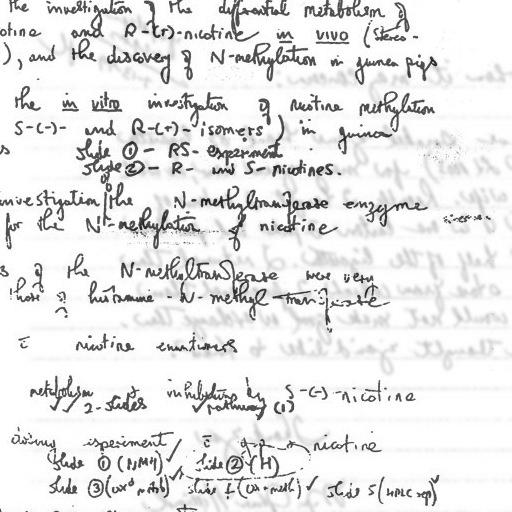 the investigation of the differential metabolism of
otine and R-(+)-nicotine in vivo (Stereo-
), and the discovery of N-methylation in guinea pigs
the in vitro investigation of nicotine methylation
S-(-)- and R-(+)-isomers) in guinea
s slide ① - RS- experiment
slide ② - R- and S- nicotines.
investigation of the N-methyltransferase enzyme
for the N-methylation of nicotine
s of the N-methyltransferase were very
those of histamine-N-methyl transferase
c̄ nicotine enantiomers
metabolism inhibition by S-(-)-nicotine
✓✓ 2-slides ✓ pathway (1)
dosing experiment ✓ c̄ nicotine
slide ① (NMH) slide ② (H)
slide ③ ✓ ✓ slide 5 (HPLC sep) ✓